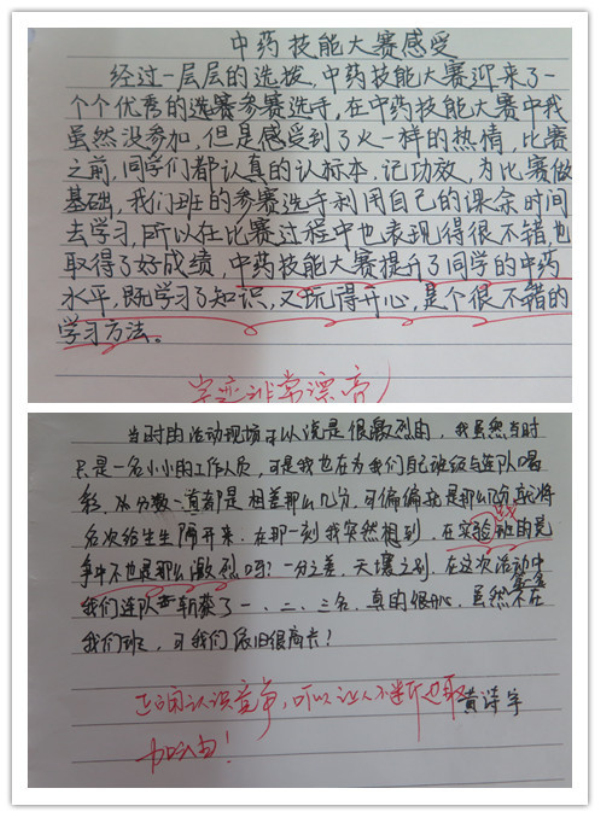 中药技能大赛感受
经过一层层的选拨,中药技能大赛迎来了一
个个优秀的选赛参赛选手,在中药技能大赛中我
虽然没参加,但是感受到了火一样的热情,比赛
之前,同学们都认真的认标本,记功效,为比赛做
基础,我们班的参赛选手利用自己的课余时间
去学习,所以在比赛过程中也表现得很不错也
取得了好成绩,中药技能大赛提升了同学的中药
水平,既学习了知识,又玩得开心,是个很不错的
学习方法。
字迹非常漂亮
当时的活动现场可以说是很激烈的,我虽然当时
只是一名小小的工作人员,可是我也在为我们自己班级与连队喝
彩,从分数一直都是相差那么几分,可偏偏就是那么几分就将
名次给生生隔开来.在那一刻我突然想到,在实验班的竞
争中不也是那么激烈吗?一分之差,天壤之别.在这次活动中
我们连队斩获了一、二、三名,真的很开心.虽然不在
我们班,可我们依旧很高兴!
正确认识竞争,可以让人不断进取
黄诗宇
加油!